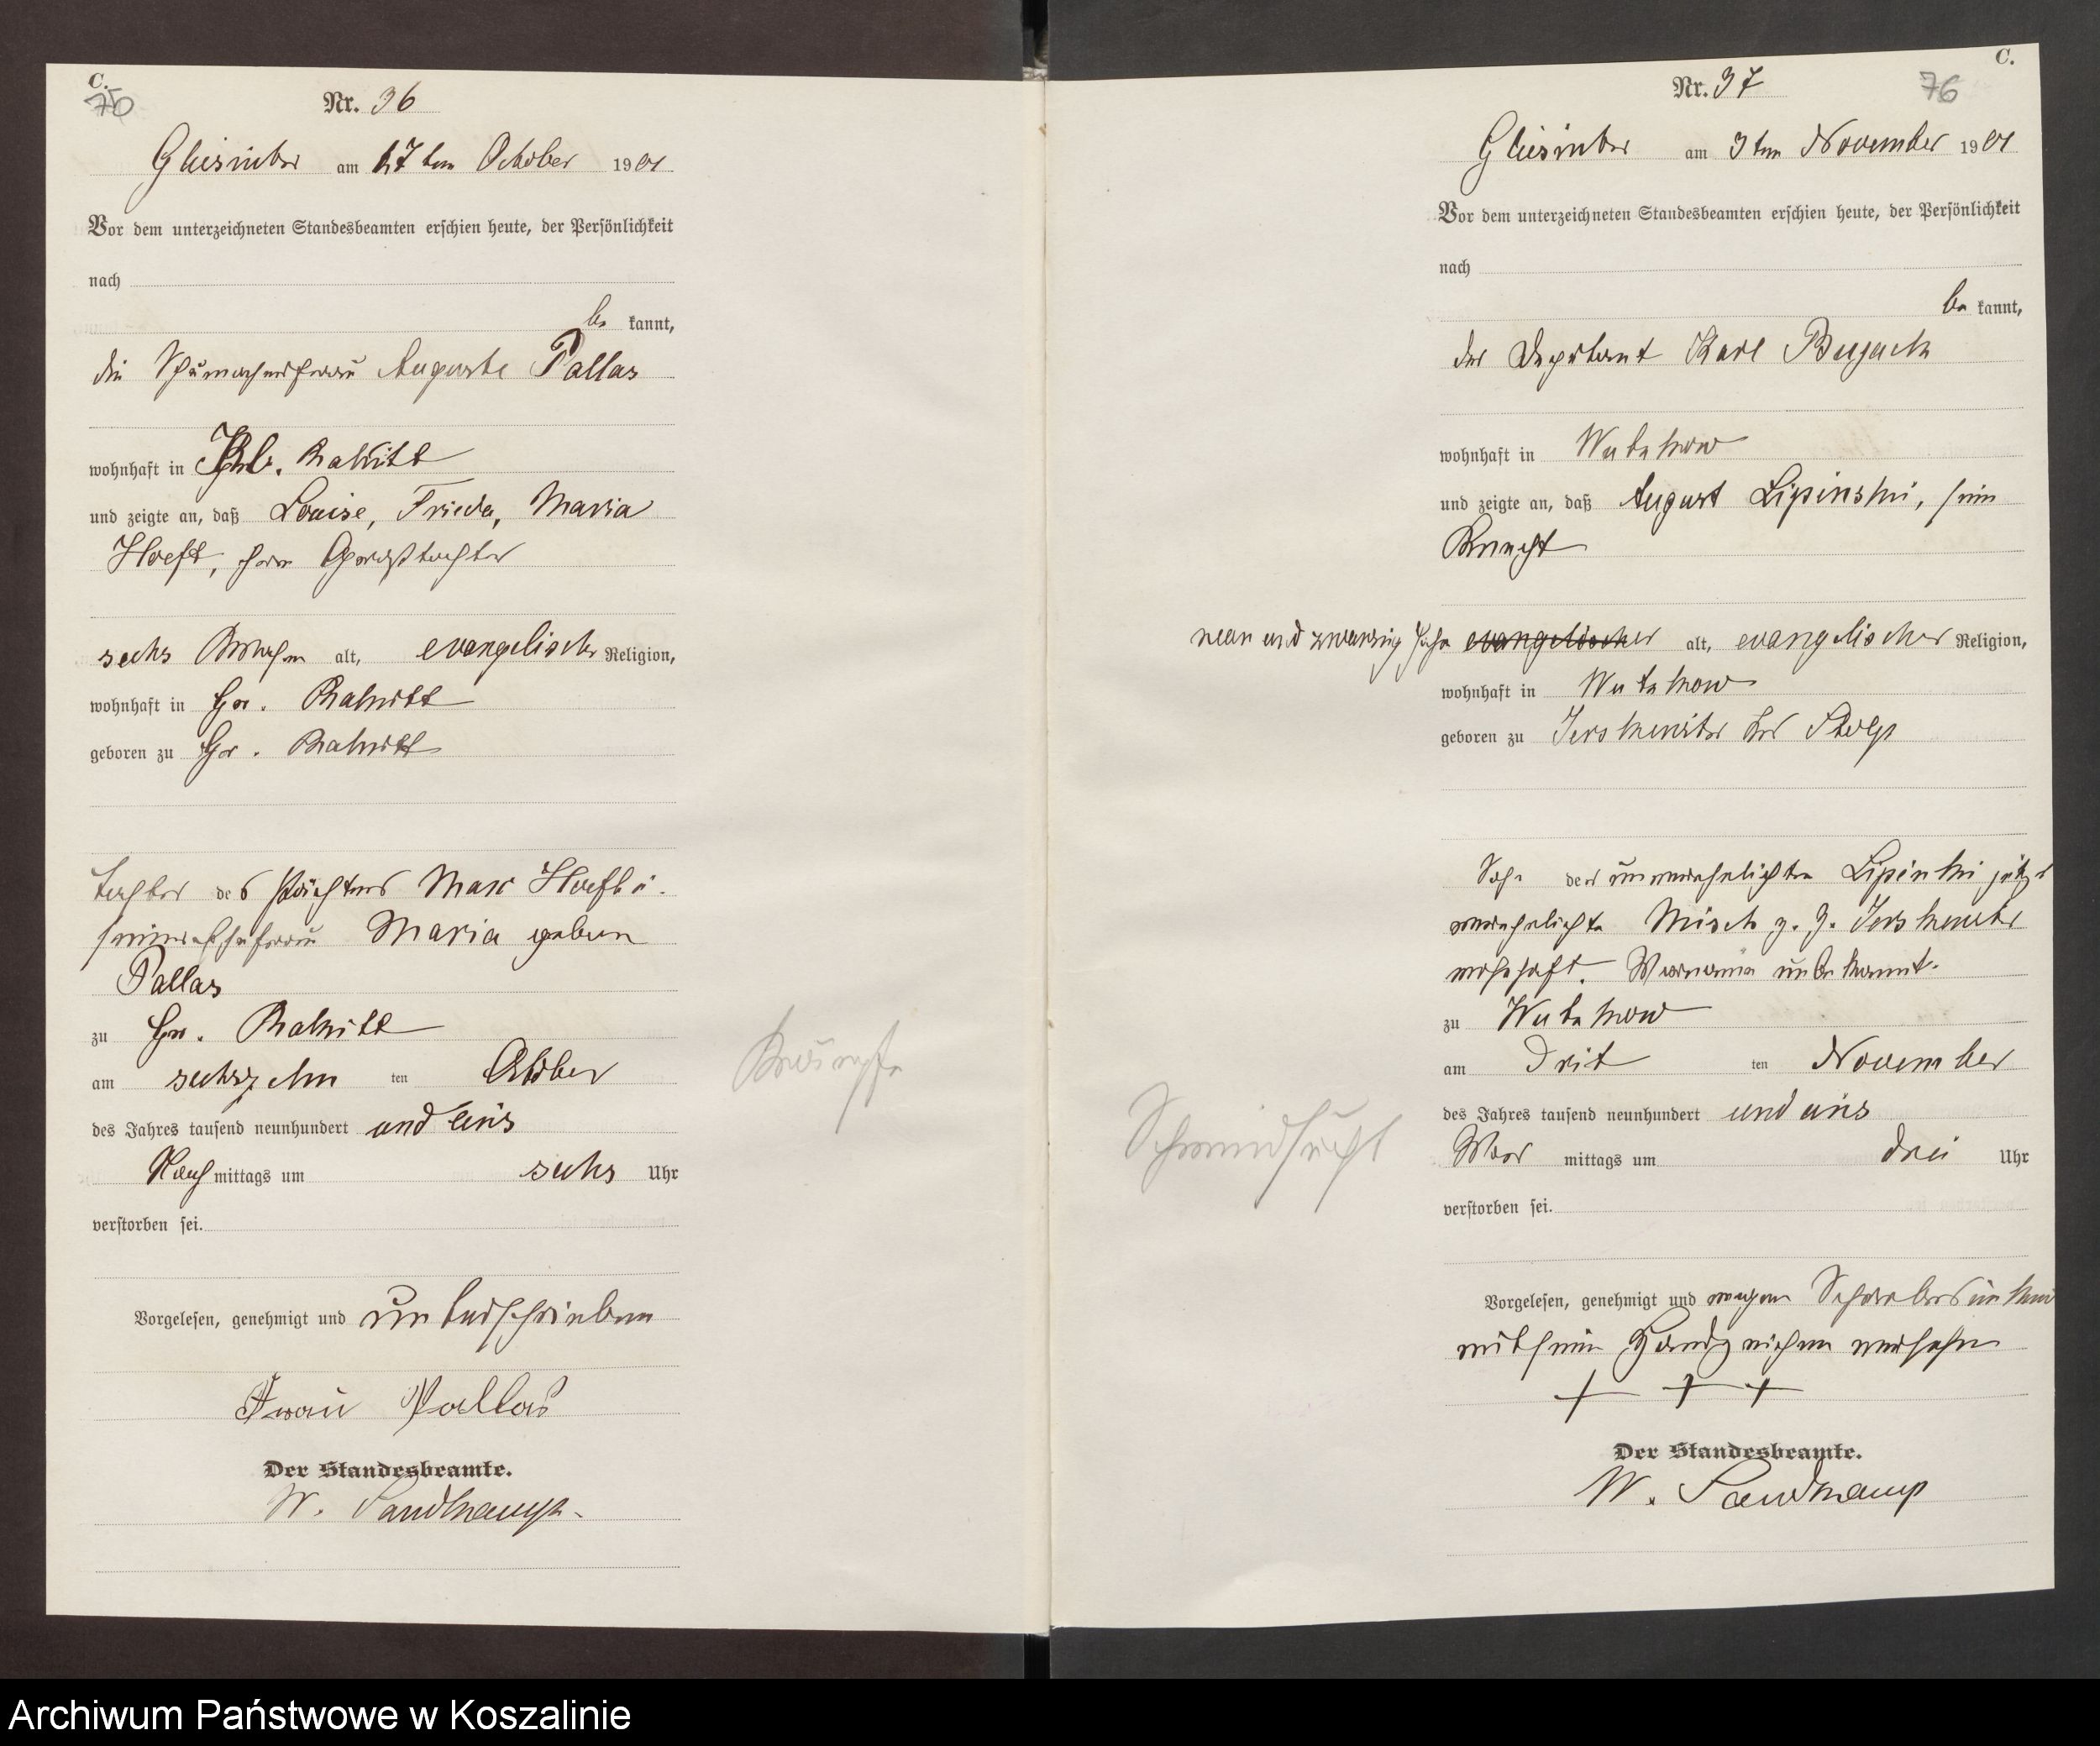 C.
75
Nr. 36
Glusinter am 17ten October 1901
Vor dem unterzeichneten Standesbeamten erschien heute, der Persönlichkeit
nach
be kannt,
die Schumacherfrau Auguste Pallas
wohnhaft in Kl. Rakitt
und zeigte an, daß Louise, Frieda, Maria
Hoeft, ihre Großtochter
sechs Wochen alt, evangelischer Religion,
wohnhaft in Gr. Rakitt
geboren zu Gr. Rakitt
tochter des Pächters Max Hoeft u.
seiner Ehefrau Maria geboren
Pallas
zu Gr. Rakitt
am sechszehn ten Oktober
des Jahres tausend neunhundert und eins
Nach mittags um sechs Uhr
verstorben sei.
Vorgelesen, genehmigt und unterschrieben
Frau Pallas
Der Standesbeamte.
W. Sandkamp.
Krämpfe
C.
76
Nr. 37
Glusinter am 3ten November 1901
Vor dem unterzeichneten Standesbeamten erschien heute, der Persönlichkeit
nach
be kannt,
der Deputant Karl Bugach
wohnhaft in Wutzkow
und zeigte an, daß August Lipinski, sein
Knecht
neun und zwanzig Jahr evangelischer alt, evangelischer Religion,
wohnhaft in Wutzkow
geboren zu Jerskewitz bei Stolp
Sohn der unverehelichten Lipinski jetzt
verehelichte Misch z. Z. Jerskewitz
wohnhaft. Vorname unbekannt.
zu Wutzkow
am Drit ten November
des Jahres tausend neunhundert und eins
Vor mittags um drei Uhr
verstorben sei.
Schwindsucht
Vorgelesen, genehmigt und wegen Schreibensunkunde
mit seinem Handzeichen versehen
+ + +
Der Standesbeamte.
W. Sandkamp
Archiwum Państwowe w Koszalinie